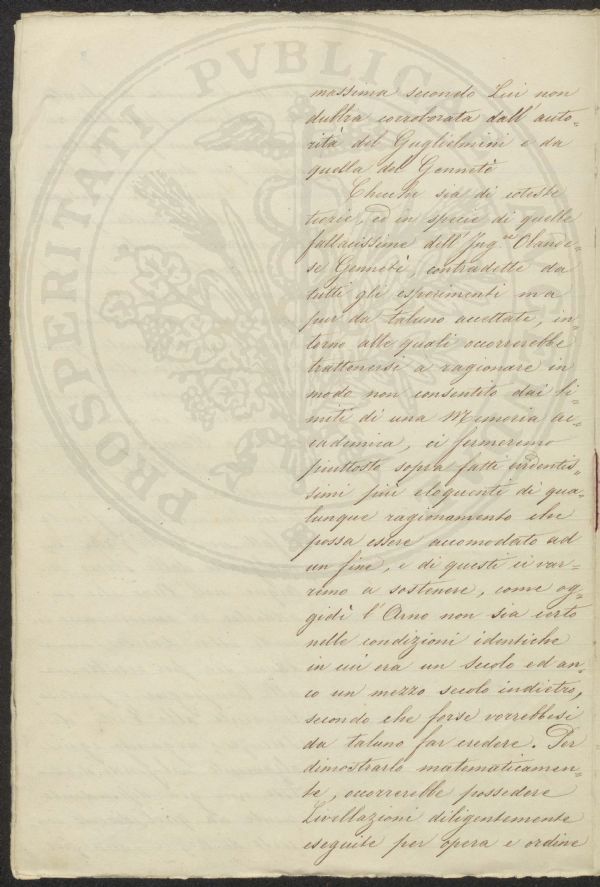 massima secondo Lui non
dubbia corroborata dall'auto-
rità del Guglielmini e da
quella del Gennetè
Checchè sia di coteste
teorie, ed in specie di quelle
fallacissime dell'Ing.re Olande-
se Gennetè, contradette da
tutti gli esperimenti ma
pur da taluno accettate, in-
torno alle quali occorrerebbe
trattenersi a ragionare in
modo non consentito dai li-
miti di una Memoria ac-
cademica, ci fermeremo
piuttosto sopra fatti evidentis-
simi più eloquenti di qua-
lunque ragionamento che
possa essere accomodato ad
un fine, e di questi ci var-
remo a sostenere, come og-
gidì l'Arno non sia certo
nelle condizioni identiche
in cui era un secolo ed an-
co un mezzo secolo indietro,
secondo che forse vorrebbesi
da taluno far credere. Per
dimostrarlo matematicamen-
te, occorrerebbe possedere
Livellazioni diligentemente
eseguite per opera e ordine
PROSPERITATI PVBLICAE